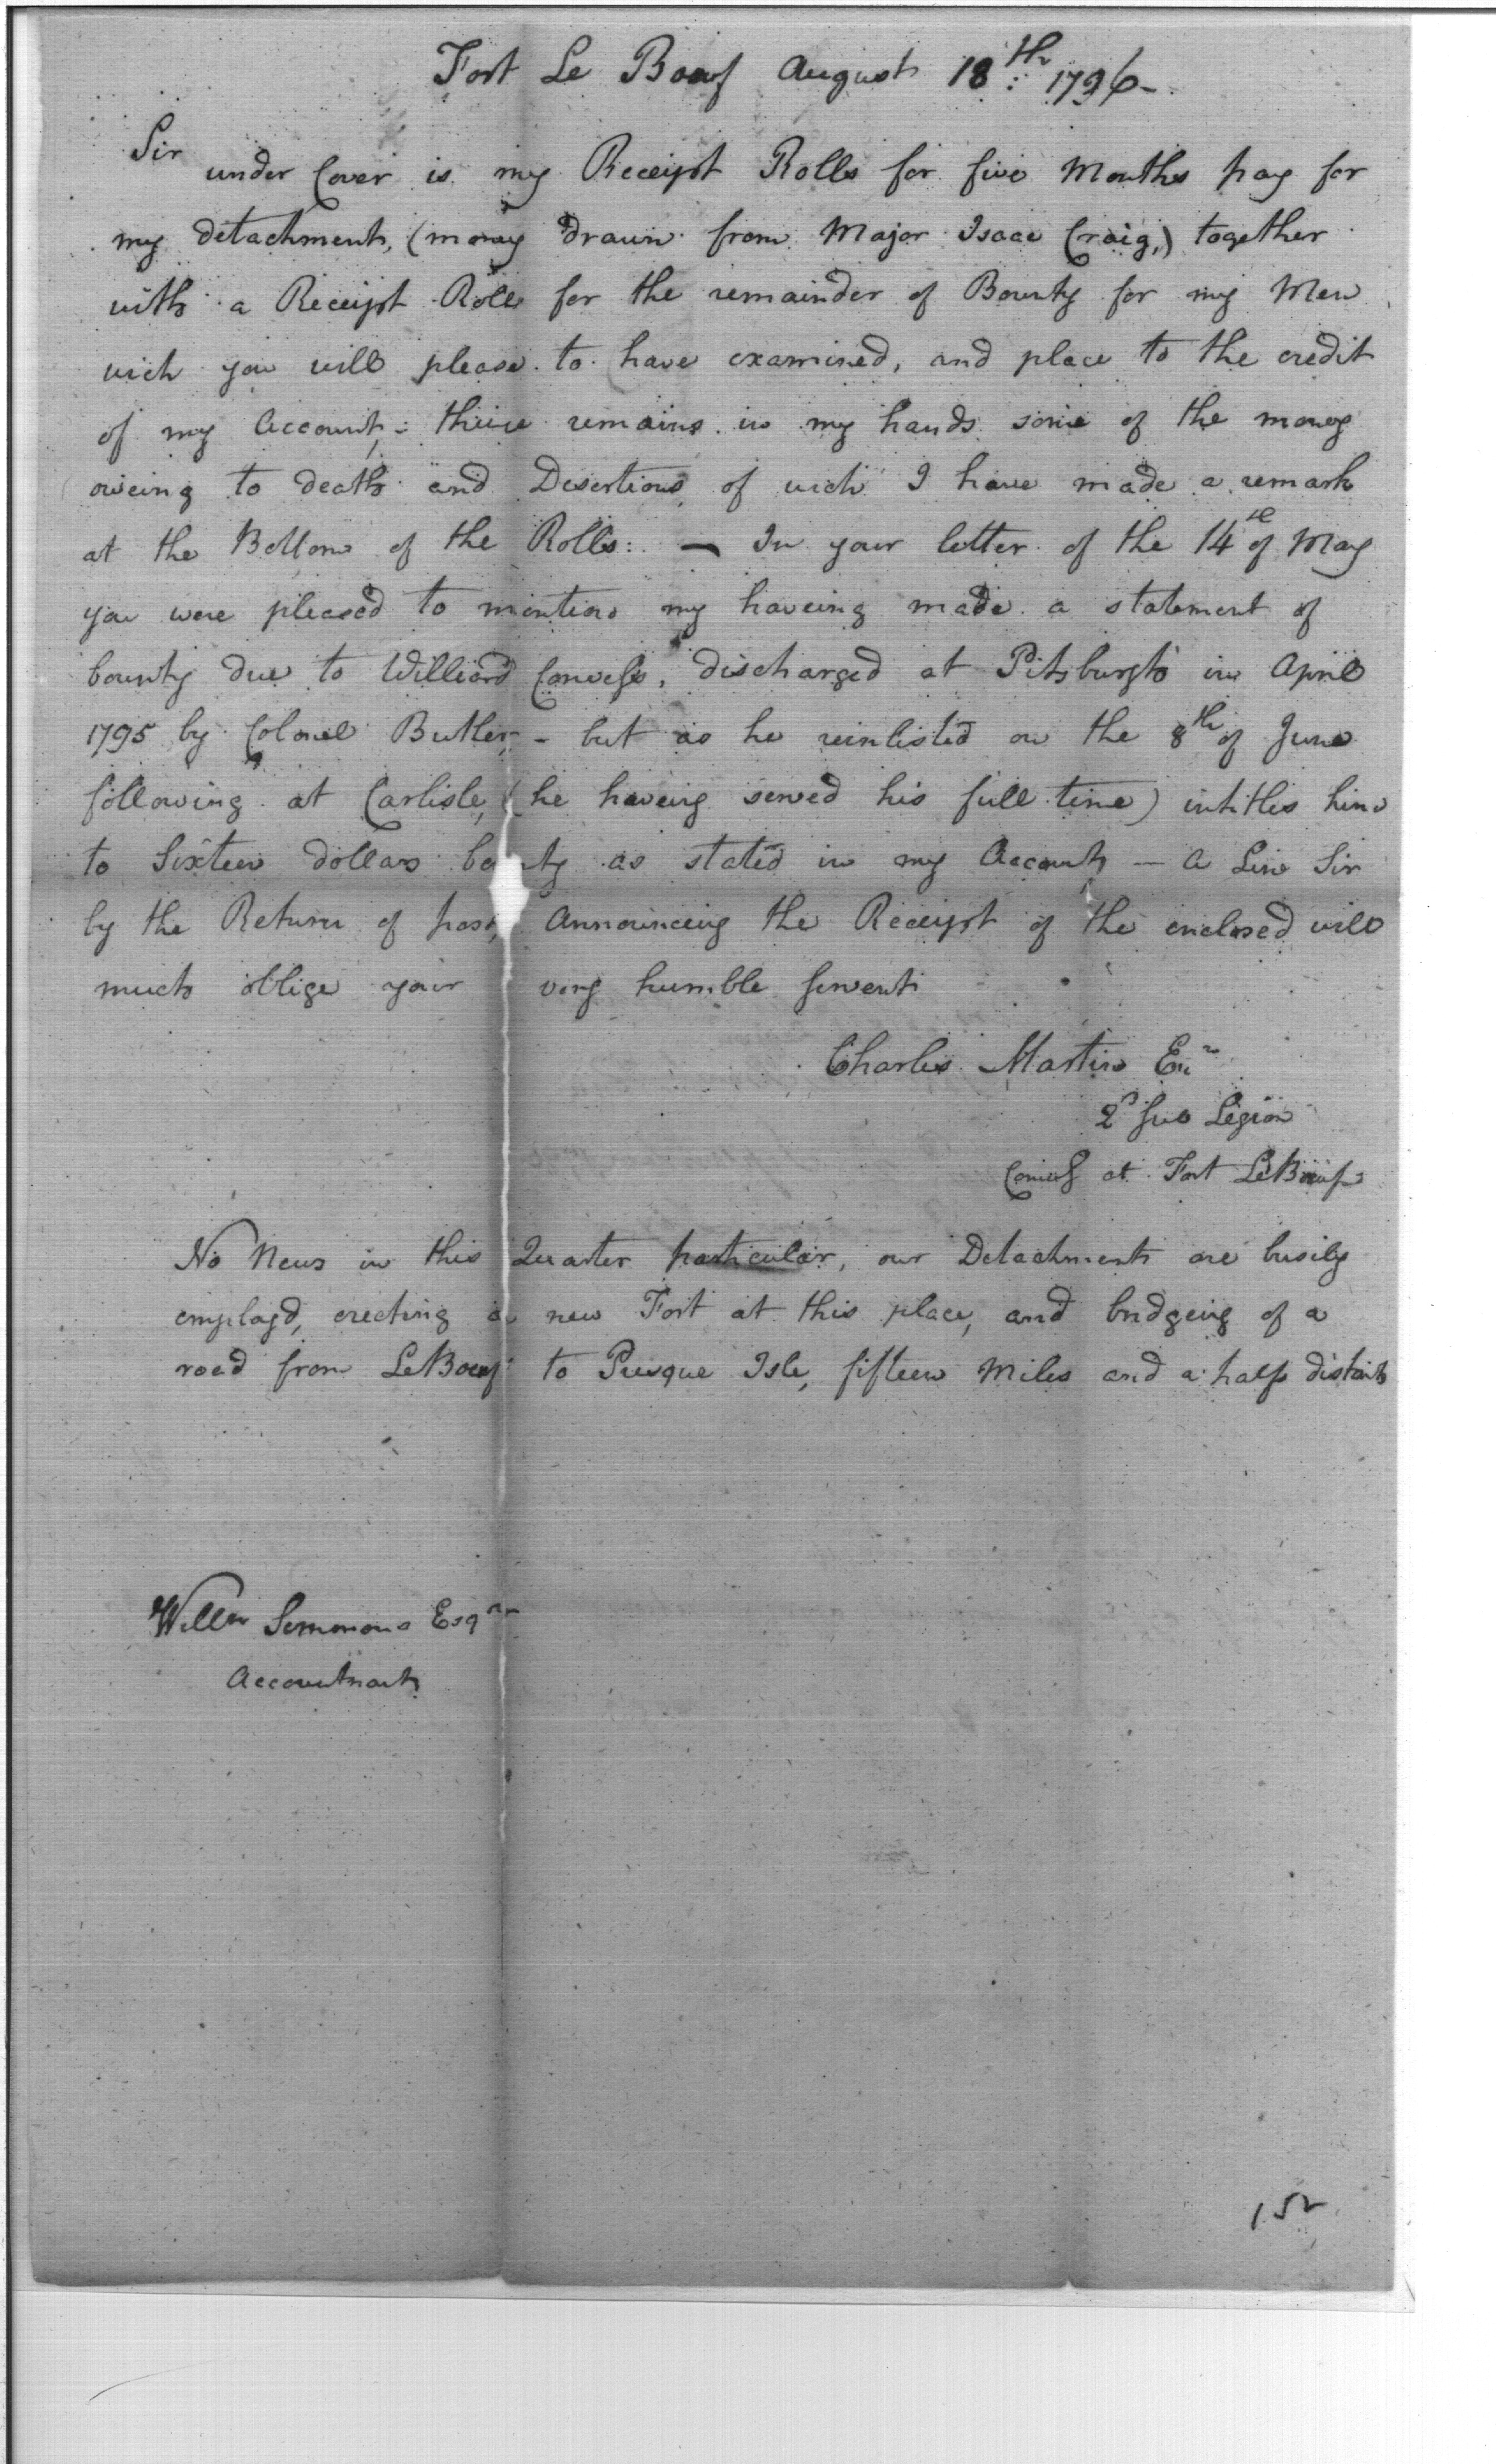 Fort Le Boeuf August 18th: 1796-
Sir
under Cover is my Receipt Rolls for five Months pay for
my detachment, (money drawn from Major Isaac Craig,) together
with a Receipt Roll for the remainder of Bounty for my Men
wich you will please to have examined, and place to the credit
of my Account; there remains in my hands some of the money
oweing to death and Desertions of wich I have made a remark
at the Bottom of the Rolls: — In your letter of the 14th of May
you were pleased to mention my haveing made a statement of
bounty due to Williard Convess, discharged at Pitsburgh in April
1795 by Colonel Butler, - but as he reinlisted on the 8th of June
following at Carlisle, (he haveing served his full time) intitles him
to Sixteen dollars bo ty as stated in my Account — A Line Sir
by the Return of post, Announceing the Receipt of the enclosed will
much oblige your very humble Servent
Charles Martin En
2d Sub Legion
Comg at Fort LeBoeuf
No News in this Quarter particular, our Detachments are busily
employd, erecting a new Fort at this place, and bridgeing of a
road from LeBoeuf to Presque Isle, fifteen Miles and a half distant
Willm Simmons Esqr
Accountnant
152